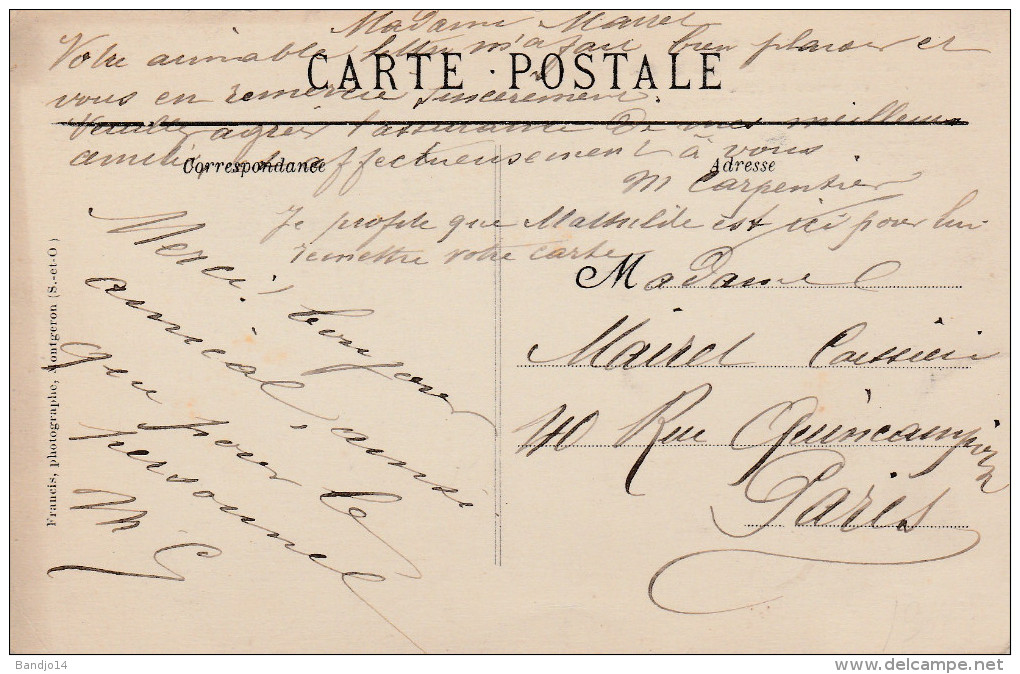 Madame Mairet
Votre aimable lettre m'a fait bien plaisir et
CARTE POSTALE
vous en remercie sincèrement.
Veuillez agréer l'assurance de mes meilleurs
affectueusement à vous
Correspondance
Adresse
M Carpentier
Je profite que Mathilde est ici pour lui
remettre votre carte
Merci, bonjour
amical, ainsi
que pour le
personnel
M C
Madame
Mairet Caissière
40 Rue Quincampoix
Paris
Francis, photographe, Montgeron (S.-et-O.)
Bandjo14
www.delcampe.net